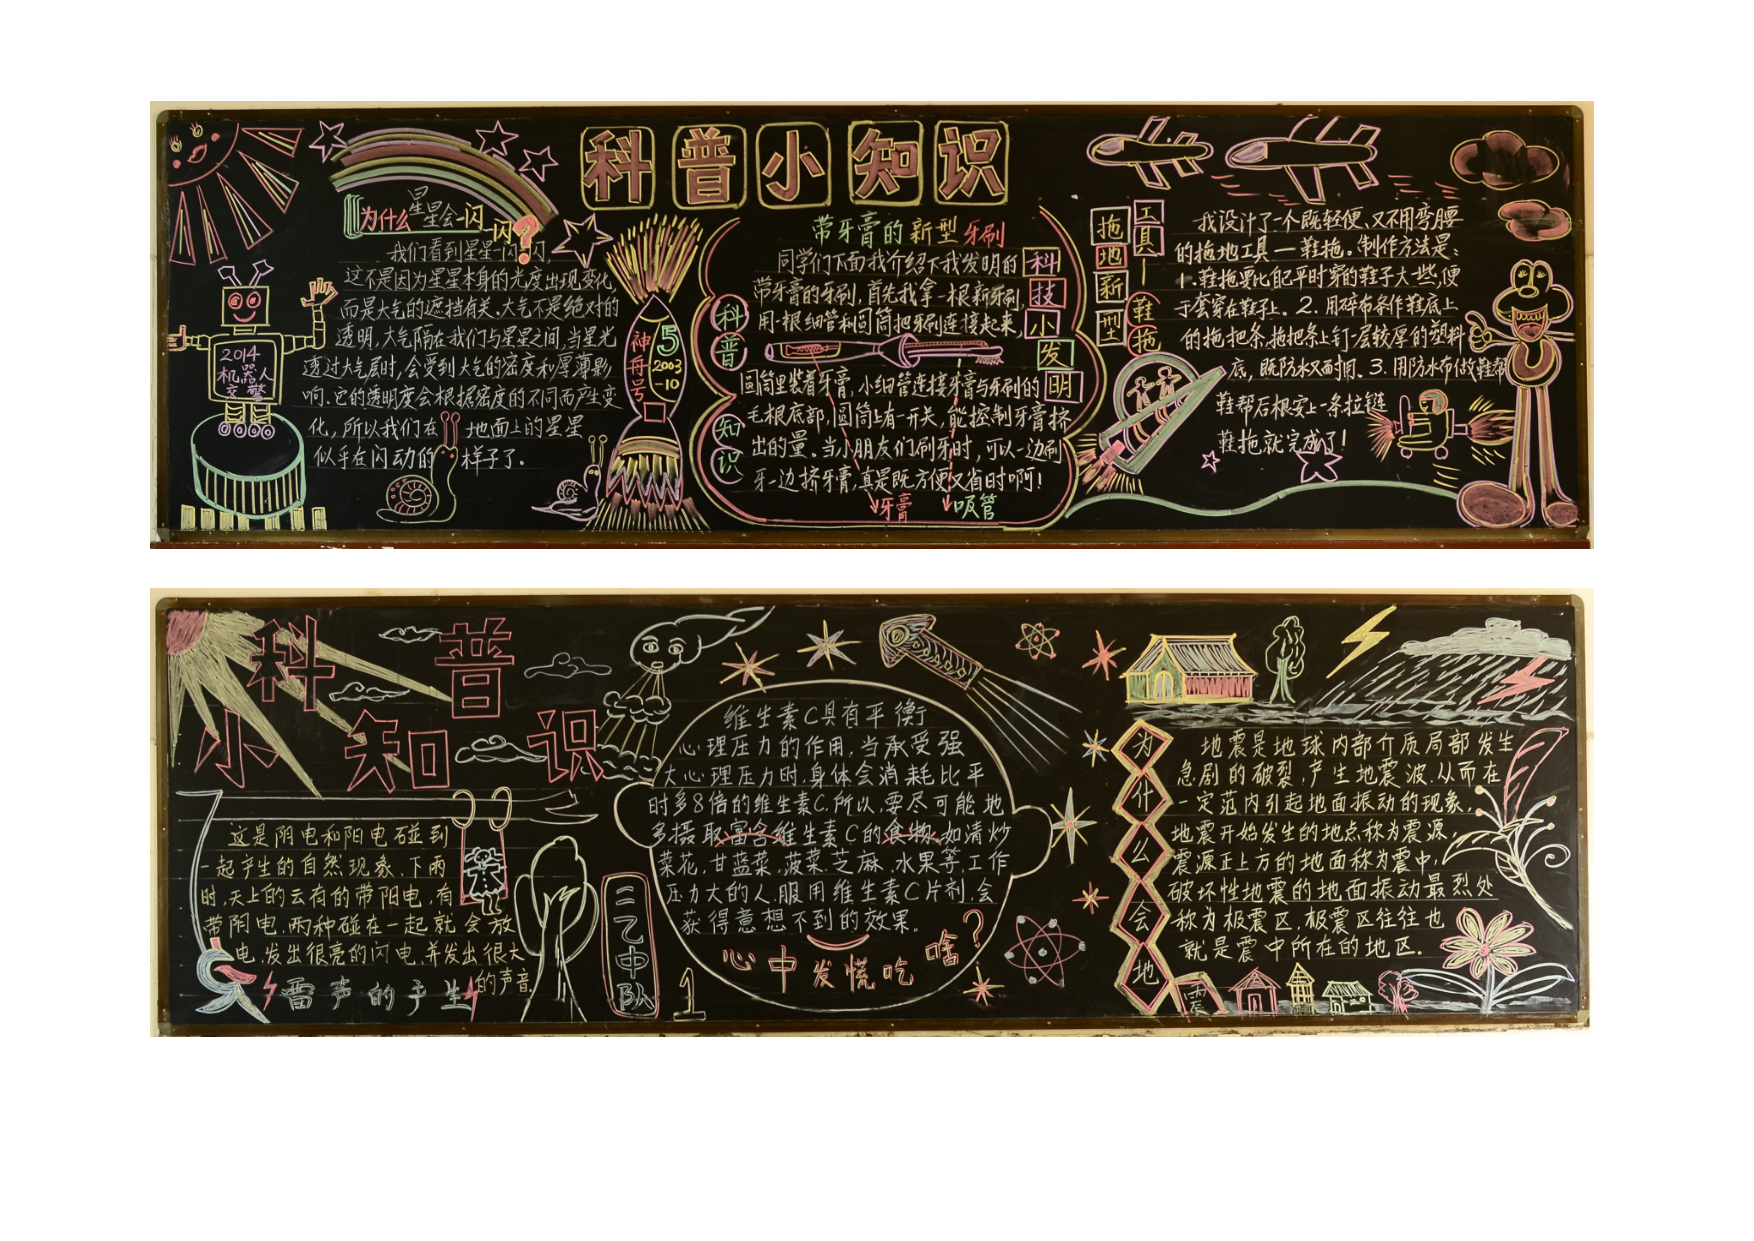 科普小知识
为什么星星会一闪闪?
我们看到星星一闪一闪,
这不是因为星星本身的光度出现变化,
而是大气的遮挡有关、大气不是绝对的
透明,大气隔在我们与星星之间,当星光
透过大气层时,会受到大气的密度和厚薄影
响.它的透明度会根据密度的不同而产生变
化,所以我们在地面上的星星
似乎在闪动的样子了.
2014
机器人
交警
神舟号
5
2003
-10
科普知识
带牙膏的新型牙刷
同学们下面我介绍下我发明的
带牙膏的牙刷,首先我拿一根新牙刷,
用一根细管和圆筒把牙刷连接起来,
圆筒里装着牙膏,小细管连接牙膏与牙刷的
毛根底部,圆筒上有一开关,能控制牙膏挤
出的量。当小朋友们刷牙时,可以一边刷
牙一边挤牙膏,真是既方便又省时啊!
牙膏 吸管
科技小发明
拖地新型
工具—
鞋拖
我设计了一个既轻便、又不用弯腰
的拖地工具—鞋拖.制作方法是:
1.鞋拖要比配平时穿的鞋子大一些,便
于套穿在鞋子上。2.用碎布条作鞋底上
的拖把条,拖把条上钉一层较厚的塑料
底,既防水又耐用.3.用防水布做鞋帮
鞋帮后根安上一条拉链
鞋拖就完成了!
科普
小知识
这是阴电和阳电碰到
一起产生的自然现象、下雨
时,天上的云有的带阳电,有
带阴电.两种碰在一起就会放
电,发出很亮的闪电,并发出很大
的声音.
雷声的产生
二乙中队
1
维生素C具有平衡
心理压力的作用.当承受强
大心理压力时,身体会消耗比平
时多8倍的维生素C.所以,要尽可能地
多摄取富含维生素C的食物,如清炒
菜花,甘蓝菜,菠菜,芝麻,水果等,工作
压力大的人.服用维生素C片剂,会
获得意想不到的效果。
心中发慌吃啥?
为什么会地震
地震是地球内部介质局部发生
急剧的破裂,产生地震波,从而在
一定范内引起地面振动的现象,
地震开始发生的地点称为震源,
震源正上方的地面称为震中,
破坏性地震的地面振动最烈处
称为极震区,极震区往往也
就是震中所在的地区.